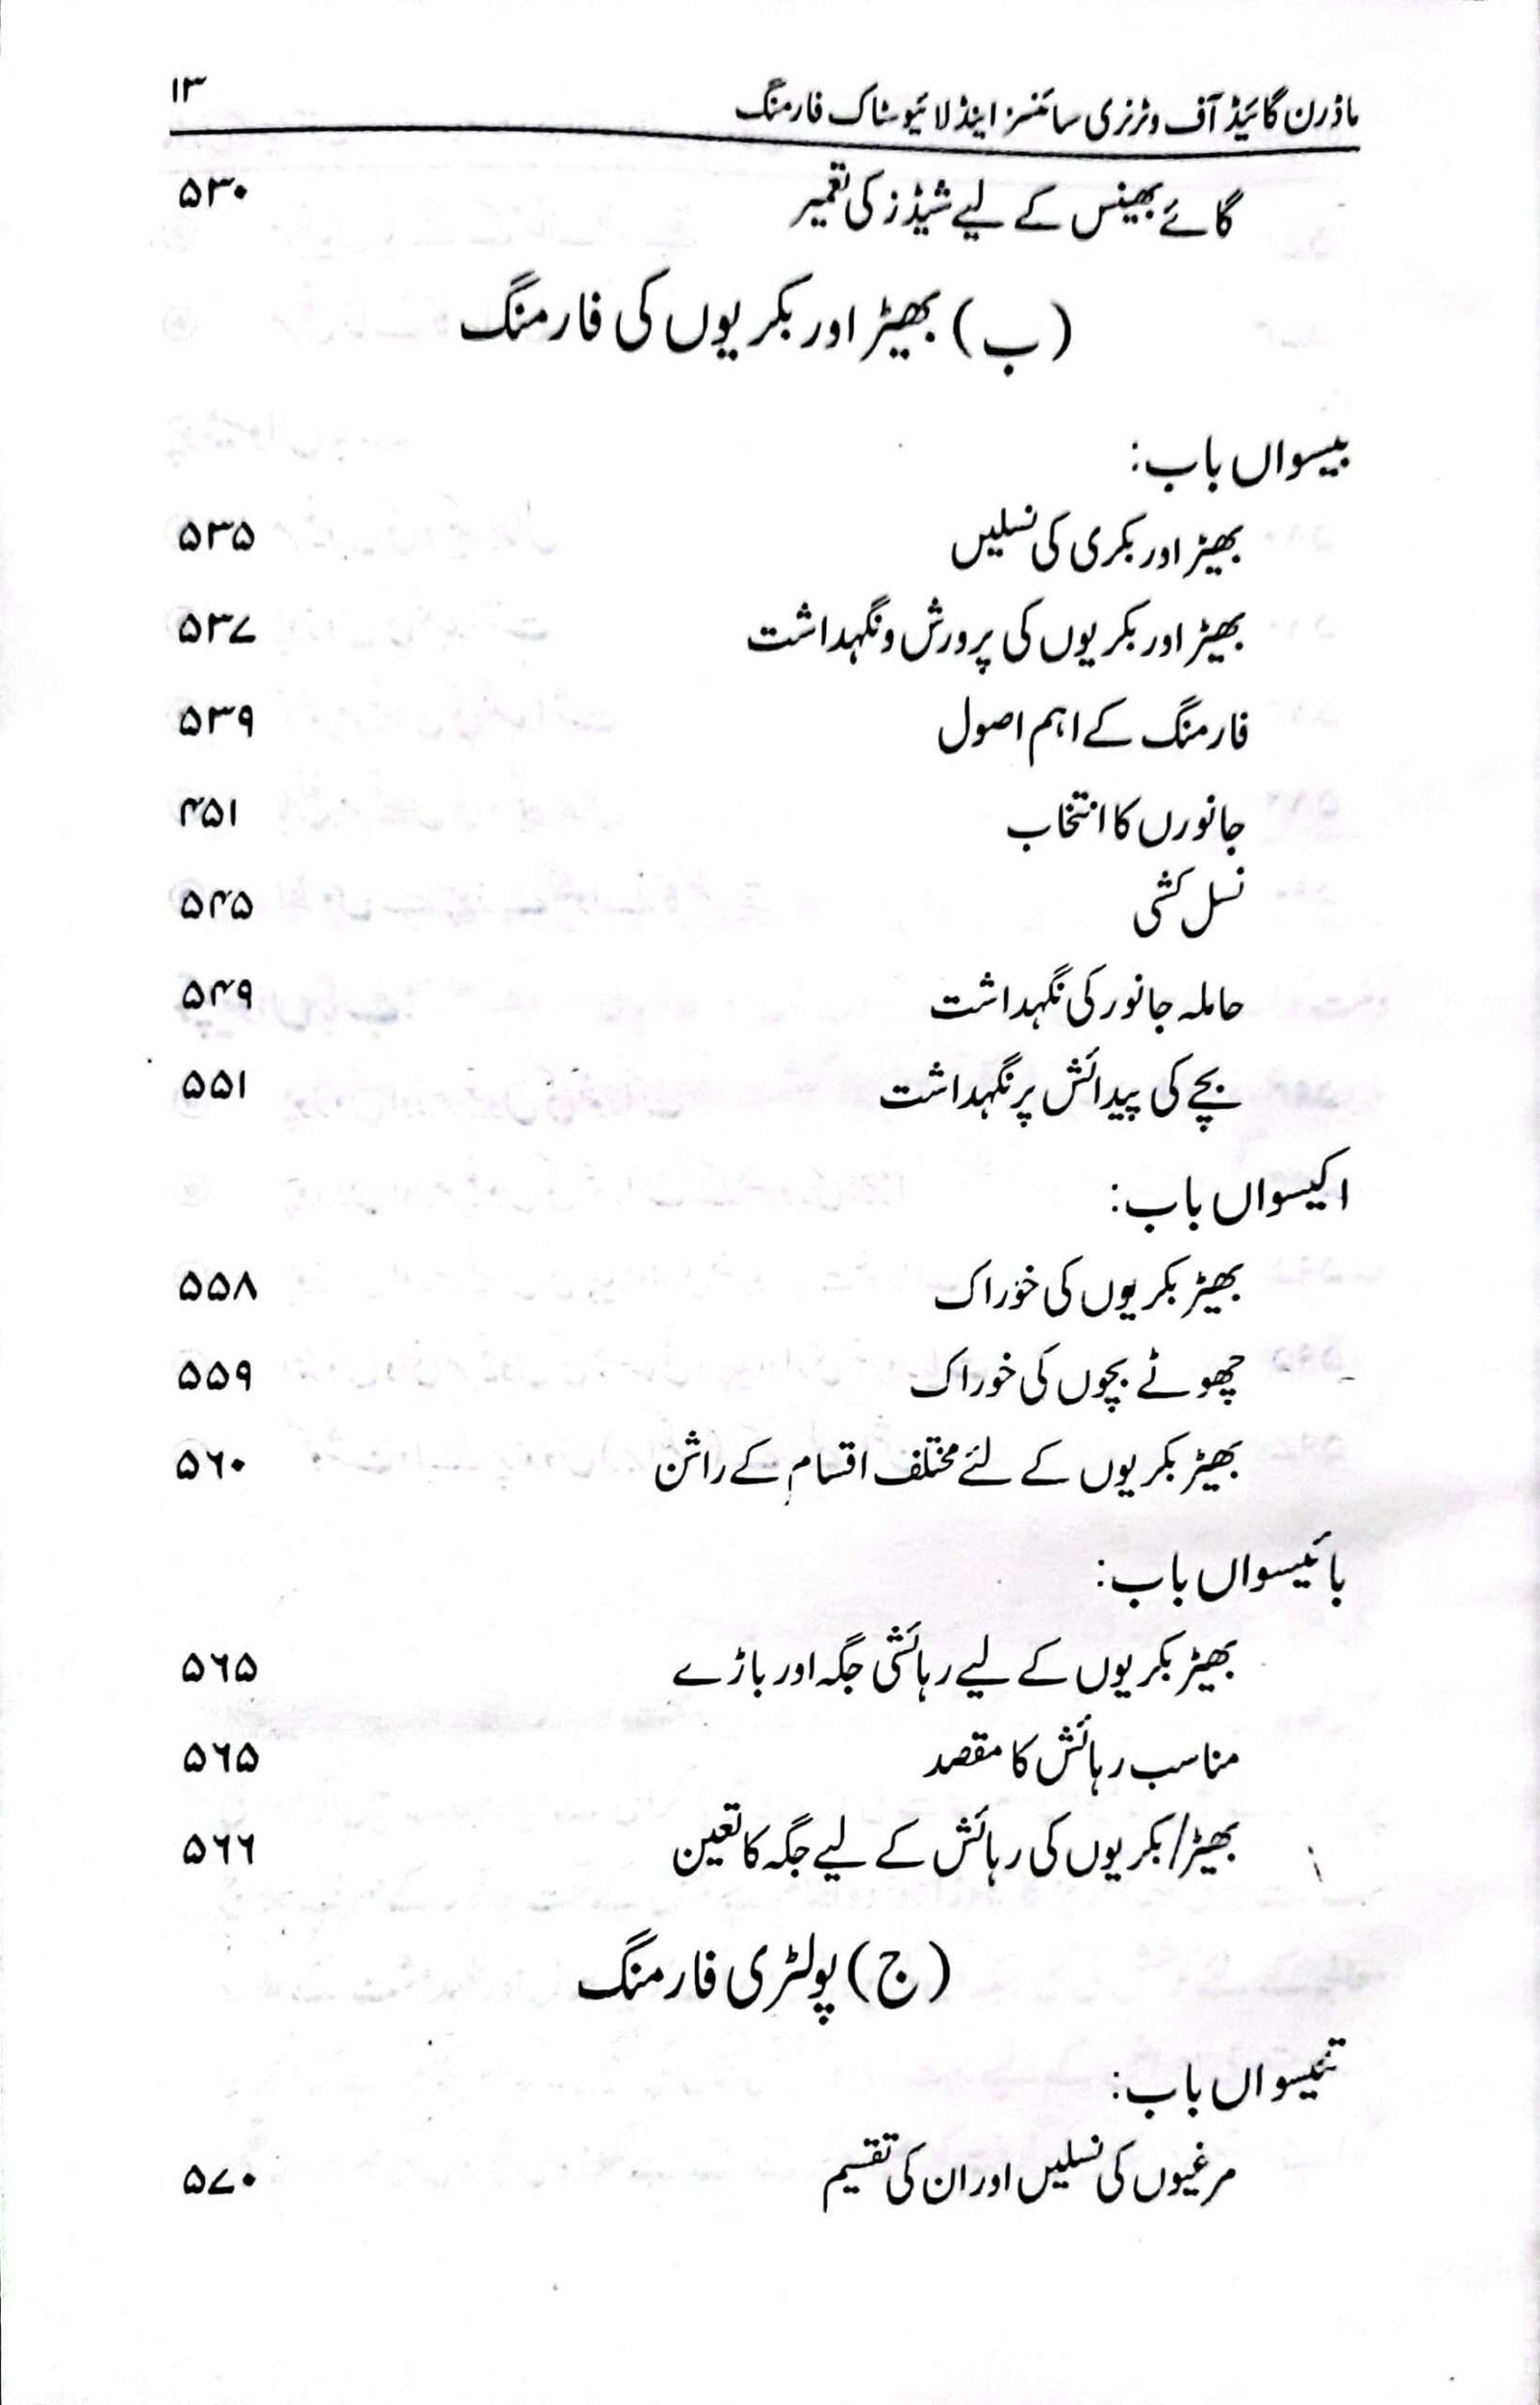 ماڈرن گائیڈ آف وٹرنری سائنسز اینڈ لائیو سٹاک فارمنگ ۱۳
گائے بھینس کے لیے شیڈز کی تعمیر ۵۳۰
(ب) بھیڑ اور بکریوں کی فارمنگ
بیسواں باب:
بھیڑ اور بکری کی نسلیں ۵۳۵
بھیڑ اور بکریوں کی پرورش و نگہداشت ۵۳۷
فارمنگ کے اہم اصول ۵۳۹
جانورں کا انتخاب ۴۵۱
نسل کشی ۵۴۵
حاملہ جانور کی نگہداشت ۵۴۹
بچے کی پیدائش پر نگہداشت ۵۵۱
اکیسواں باب:
بھیڑ بکریوں کی خوراک ۵۵۸
چھوٹے بچوں کی خوراک ۵۵۹
بھیڑ بکریوں کے لئے مختلف اقسام کے راشن ۵۶۰
بائیسواں باب:
بھیڑ بکریوں کے لیے رہائشی جگہ اور باڑے ۵۶۵
مناسب رہائش کا مقصد ۵۶۵
بھیڑ/بکریوں کی رہائش کے لیے جگہ کا تعین ۵۶۶
(ج) پولٹری فارمنگ
تئیسواں باب:
مرغیوں کی نسلیں اور ان کی تقسیم ۵۷۰